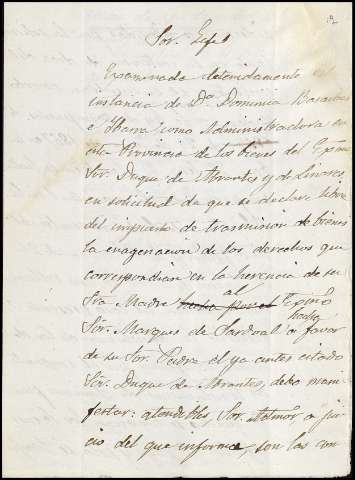 2
Sor. Gefe
Examinada detenidamente la
instancia de Da. Dominica Basarrate
e Ibarra como Administradora en
esta Provincia de los bienes del Exmo
Sor. Duque de Abrantes y de Linares,
en solicitud de que se declare libre
del impuesto de trasmision de bienes
la enagenacion de los derechos que
correspondian en la herencia de su
Sra. Madre al Exmo
Sor. Marques de Sardoal hecha a favor
de su Sor. Padre el ya antes citado
Sor. Duque de Abrantes, debo mani-
festar: atendibles, Sor. a jui-
cio del que informa, son las con